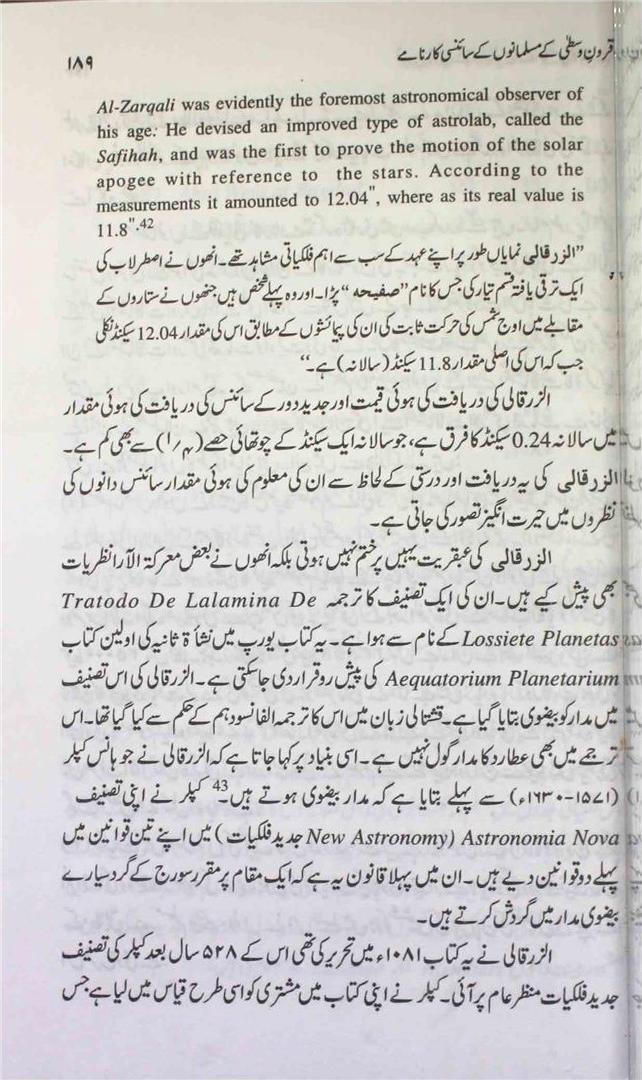 قرونِ وسطیٰ کے مسلمانوں کے سائنسی کارنامے
۱۸۹
Al-Zarqali was evidently the foremost astronomical observer of
his age. He devised an improved type of astrolab, called the
Safihah, and was the first to prove the motion of the solar
apogee with reference to the stars. According to the
measurements it amounted to 12.04", where as its real value is
11.8".42
”الزرقالی نمایاں طور پر اپنے عہد کے سب سے اہم فلکیاتی مشاہد تھے۔ انھوں نے اصطرلاب کی
ایک ترقی یافتہ قسم تیار کی جس کا نام ”صفیحہ“ پڑا۔ اور وہ پہلے شخص ہیں جنھوں نے ستاروں کے
مقابلے میں اوج شمس کی حرکت ثابت کی ان کی پیمائشوں کے مطابق اس کی مقدار 12.04 سیکنڈ نکلی
جب کہ اس کی اصلی مقدار 11.8 سیکنڈ (سالانہ) ہے۔“
الزرقالی کی دریافت کی ہوئی قیمت اور جدید دور کے سائنس کی دریافت کی ہوئی مقدار
میں سالانہ 0.24 سیکنڈ کا فرق ہے، جو سالانہ ایک سیکنڈ کے چوتھائی حصے (۱/۴) سے بھی کم ہے۔
الزرقالی کی یہ دریافت اور درستی کے لحاظ سے ان کی معلوم کی ہوئی مقدار سائنس دانوں کی
نظروں میں حیرت انگیز تصور کی جاتی ہے۔
الزرقالی کی عبقریت یہیں پر ختم نہیں ہوتی بلکہ انھوں نے بعض معرکۃ الآرا نظریات
بھی پیش کیے ہیں۔ ان کی ایک تصنیف کا ترجمہ Tratodo De Lalamina De
Lossiete Planetas کے نام سے ہوا ہے۔ یہ کتاب یورپ میں نشأۃ ثانیہ کی اولین کتاب
Aequatorium Planetarium کی پیش رو قرار دی جا سکتی ہے۔ الزرقالی کی اس تصنیف
میں مدار کو بیضوی بتایا گیا ہے۔ قشتالی زبان میں اس کا ترجمہ الفانسو دہم کے حکم سے کیا گیا تھا۔ اس
ترجمے میں بھی عطارد کا مدار گول نہیں ہے۔ اسی بنیاد پر کہا جاتا ہے کہ الزرقالی نے جو ہانس کپلر
(۱۵۷۱-۱۶۳۰ء) سے پہلے بتایا ہے کہ مدار بیضوی ہوتے ہیں۔43 کپلر نے اپنی تصنیف
Astronomia Nova (New Astronomy جدید فلکیات) میں اپنے تین قوانین میں
پہلے دو قوانین دیے ہیں۔ ان میں پہلا قانون یہ ہے کہ ایک مقام پر مقرر سورج کے گرد سیارے
بیضوی مدار میں گردش کرتے ہیں۔
الزرقالی نے یہ کتاب ۱۰۸۱ء میں تحریر کی تھی اس کے ۵۲۸ سال بعد کپلر کی تصنیف
جدید فلکیات منظر عام پر آئی۔ کپلر نے اپنی کتاب میں مشتری کو اسی طرح قیاس میں لیا ہے جس